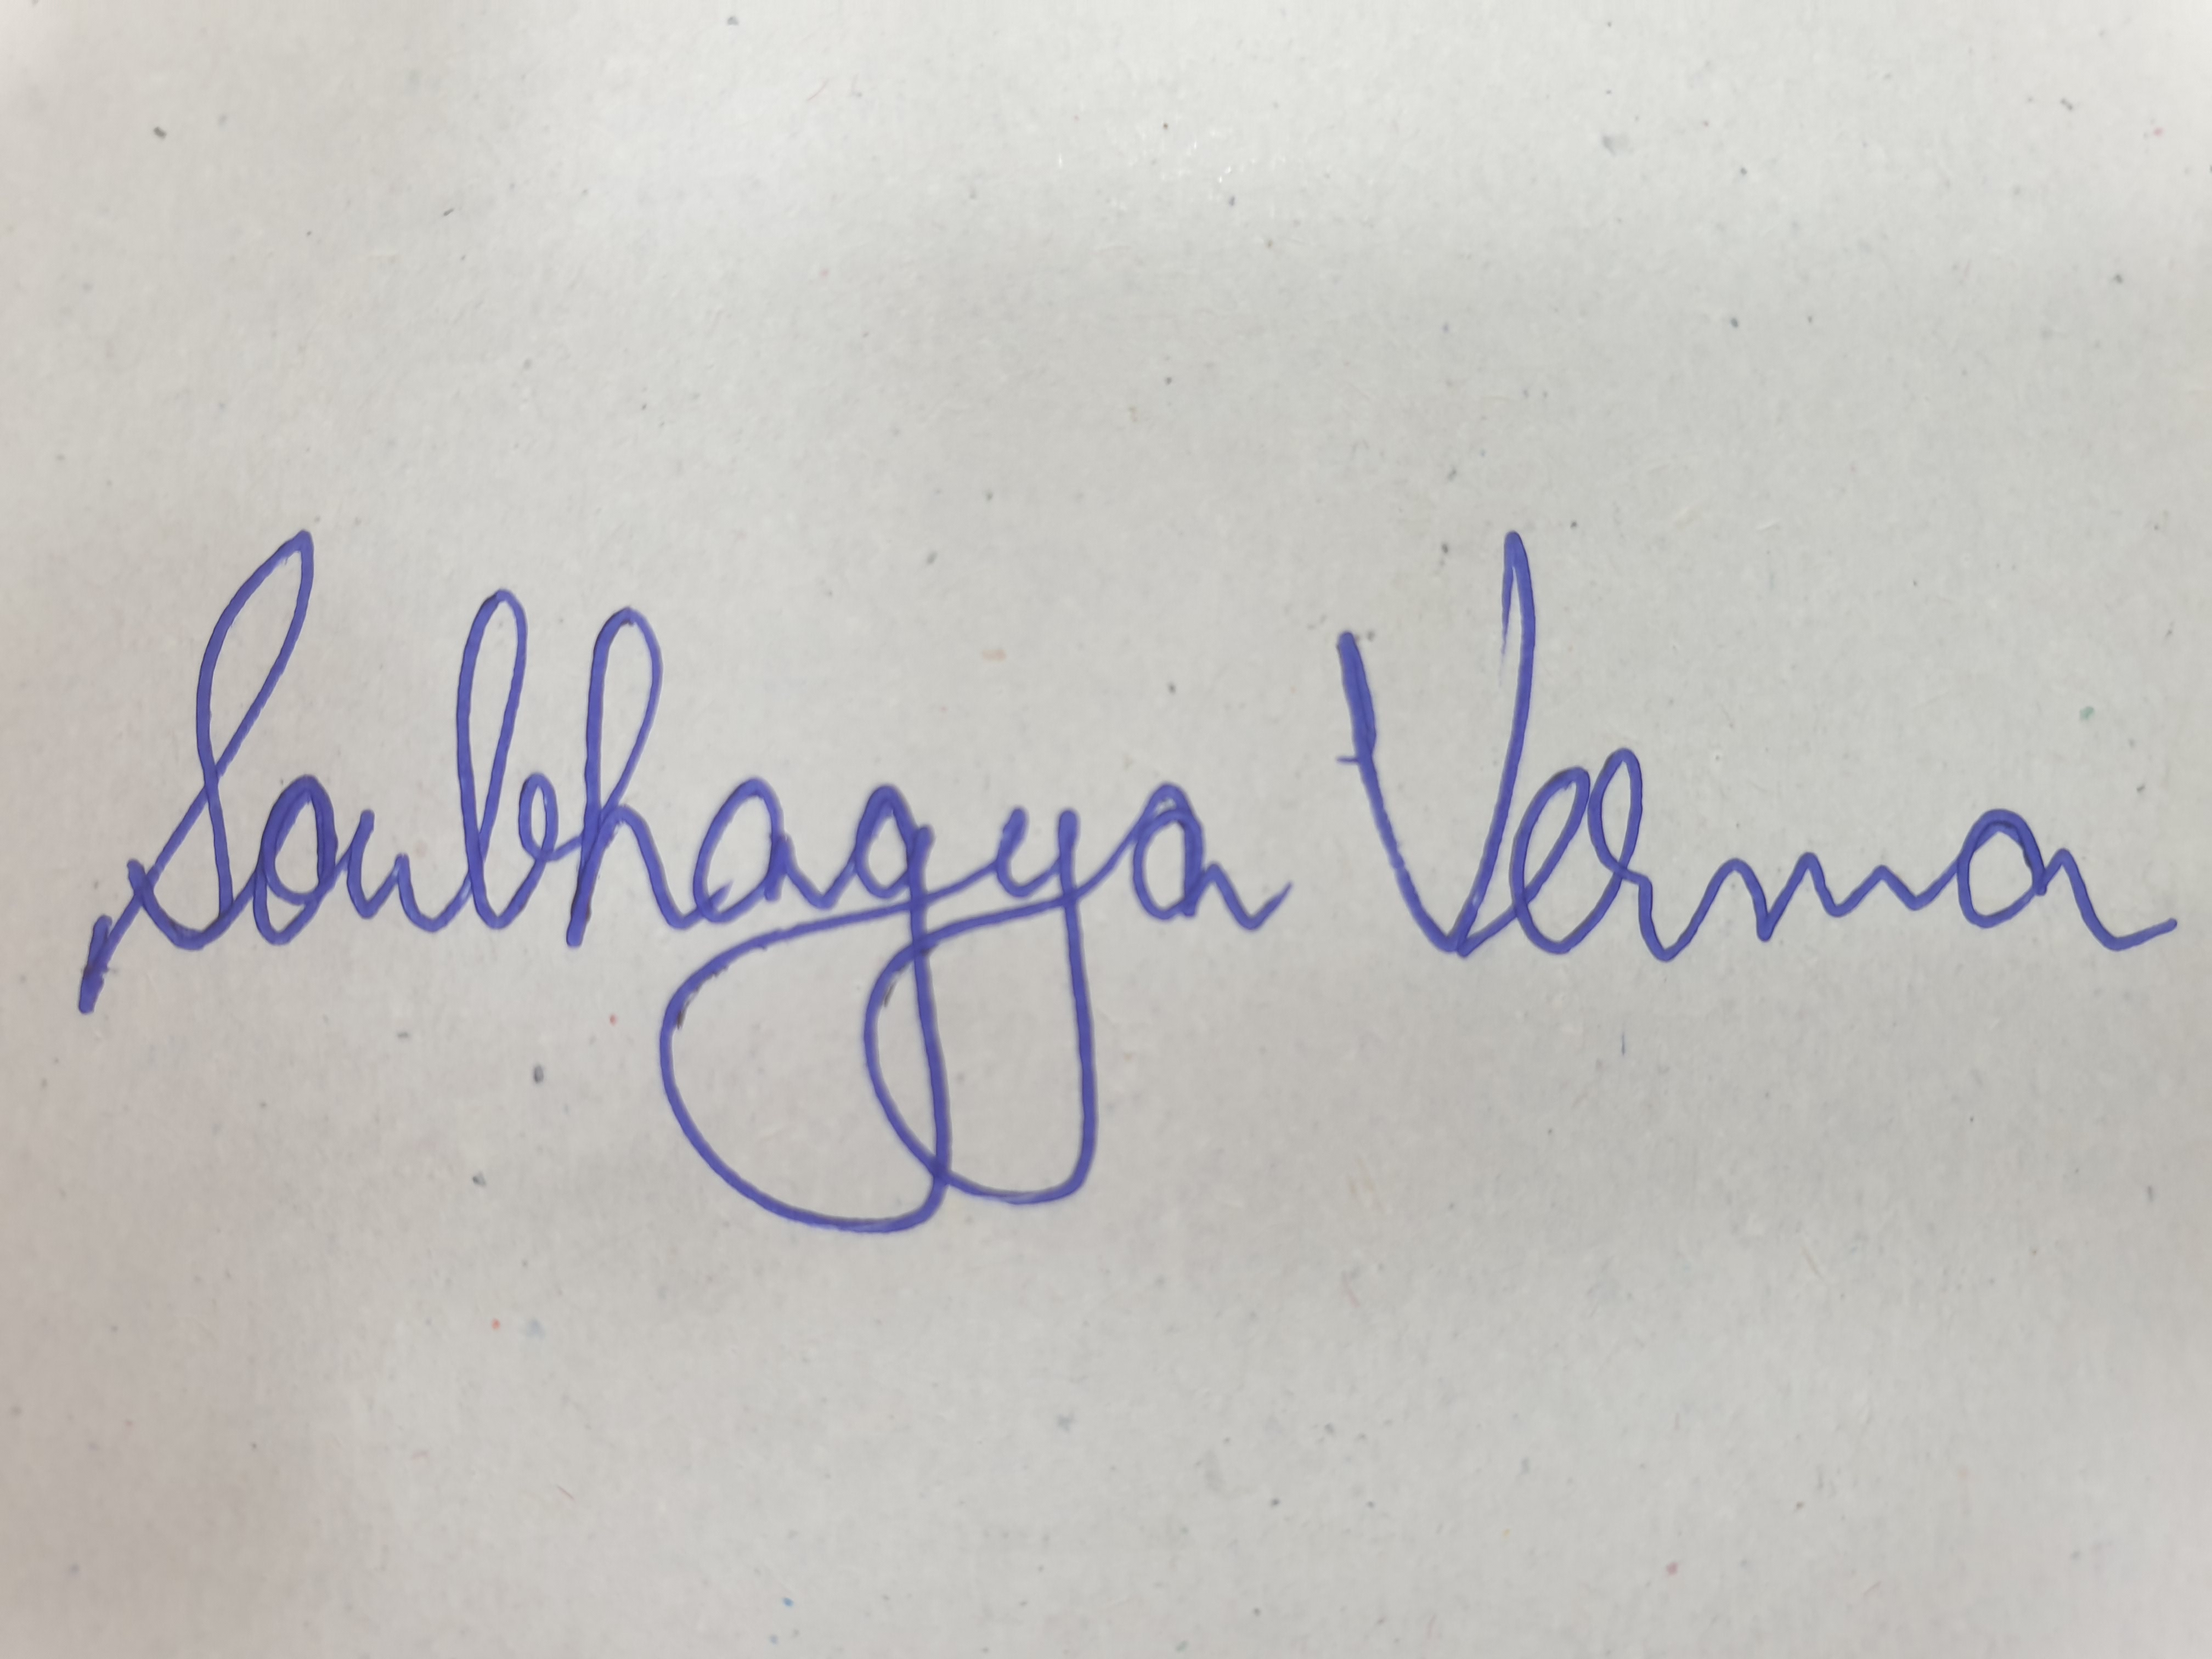 Saubhagya Verma